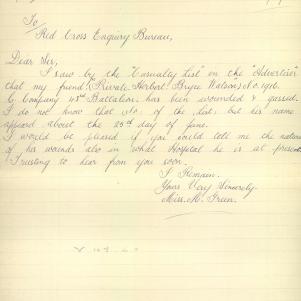 To
Red Cross Enquiry Bureau,
Dear Sir,
I saw by the "Casualty List" on the "Advertiser"
that my friend (Private Herbert Bryce Watson) No. 1916.
C. Company 43rd Battalion. has been wounded & gassed.
I do not know that No. of the list, but his name
appeard about the 25th day of June.
I would be pleased if you could tell me the nature
of his wounds also in what Hospital he is at present
Trusting to hear from you soon.
I Remain.
Yours Very Sincerely.
Miss. M. Green.